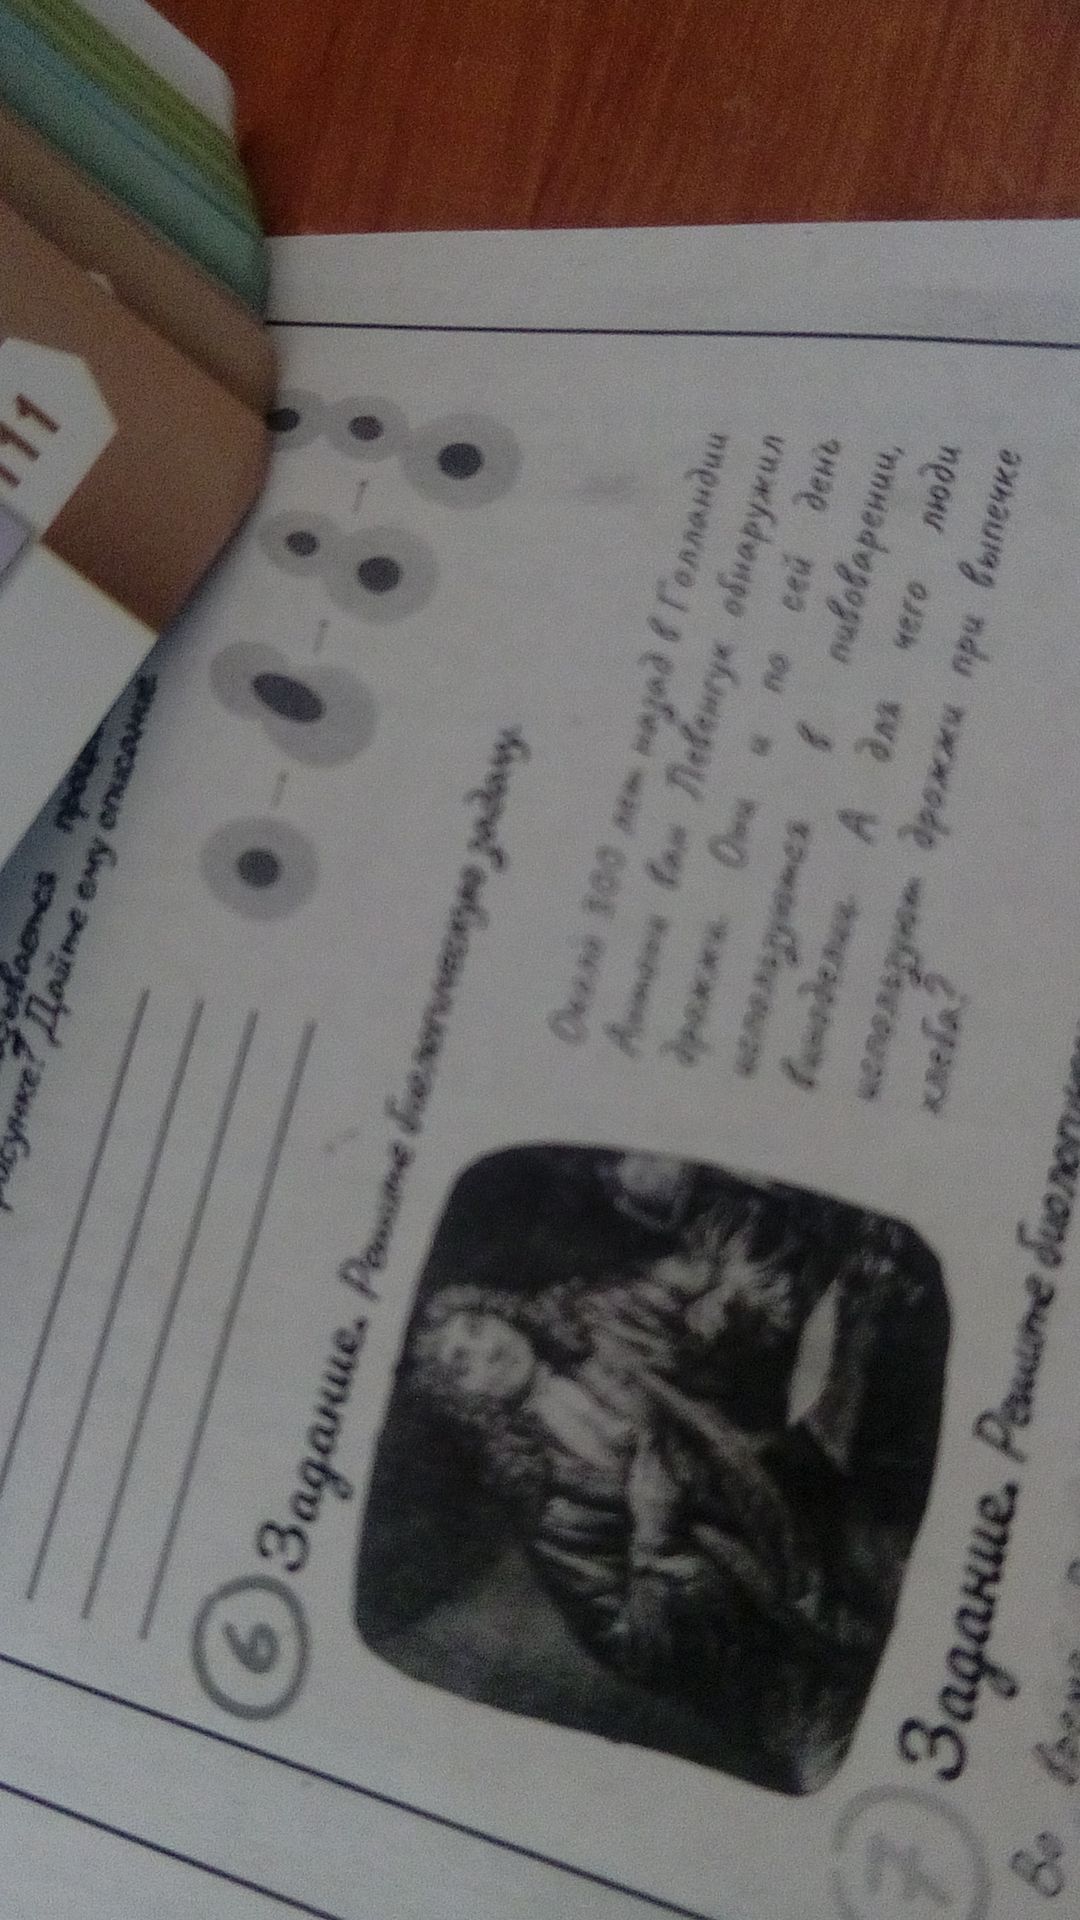 111
рисунке? Дайте ему описание
6 Задание. Решите биологическую задачу.
Около 300 лет назад в Голландии
Антони ван Левенгук обнаружил
дрожжи. Они и по сей день
используются в пивоварении,
виноделии. А для чего люди
используют дрожжи при выпечке
хлеба?
7 Задание. Решите
Во